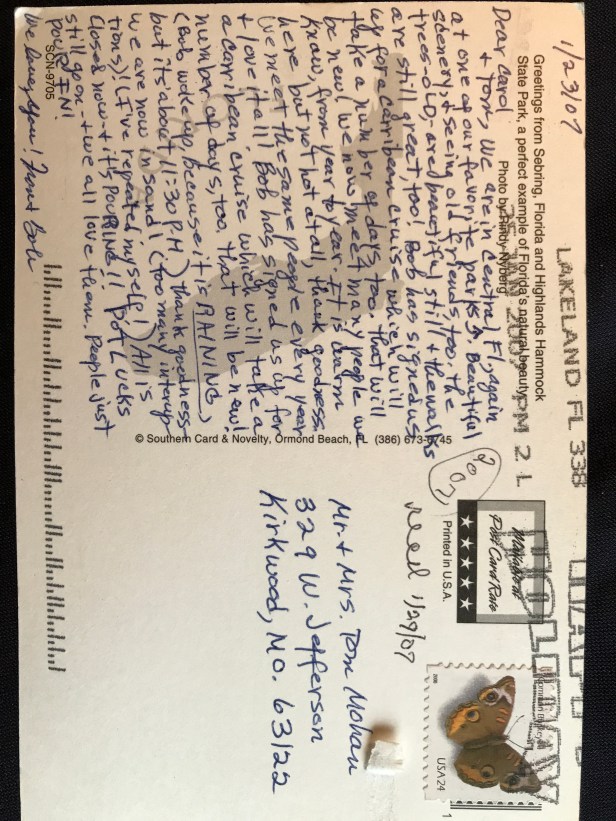 1/23/07
Greetings from Sebring, Florida and Highlands Hammock
State Park, a perfect example of Florida's natural beauty.
Photo by Rindy Nyberg
Dear Carol
+ Tom, We are in Central Fl, again
at one of our favorite parks in. Beautiful
scenery, + seeing old friends too. The
trees-old, are beautiful still + the walks
are still great, too! Bob has signed us
up for a carribean cruise which will
take a number of days, too. that will
be new! We now meet many people we
know, from year to year. It is warm
here, but not hot at all, thank goodness.
We meet the same people every year
+ love it all! Bob has signed us up for
a carribean cruise which will take a
number of days, too, that will be new!
(Bob woke up, because it is RAINING,
but it's about 11:30 P.M.) thank goodness
we are now in sand! (too many interup
tions)! (I've repeated myself!) All is
closed now + it's POURING!! POT LUCKS
still go on - + we all love them. People just
pour IN!
SCN-9705
We hug you! Love + Bob
© Southern Card & Novelty, Ormond Beach, FL (386) 673-6745
LAKELAND FL 338
JAN 2007 PM 2 L
2007
Printed in U.S.A.
★★★★★
Post Card Rate
HOLIDAY
recd 1/29/07
USA 24
Mr. + Mrs. Tom Mohan
329 W. Jefferson
Kirkwood, MO. 63122